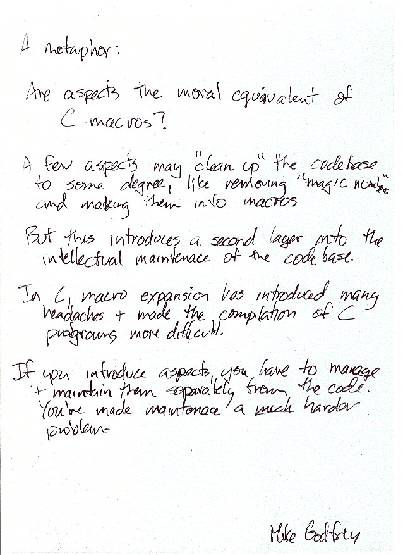 A metaphor:
Are aspects the moral equivalent of
C macros?
A few aspects may "clean up" the codebase
to some degree, like removing "magic number"
and making them into macros
But this introduces a second layer onto the
intellectual maintenace of the code base.
In C, macro expansion has introduced many
headaches + made the compilation of C
programs more difficult.
If you introduce aspects, you have to manage
+ maintain them separately from the code.
You've made maintenace a much harder
problem
Mike Godfrey